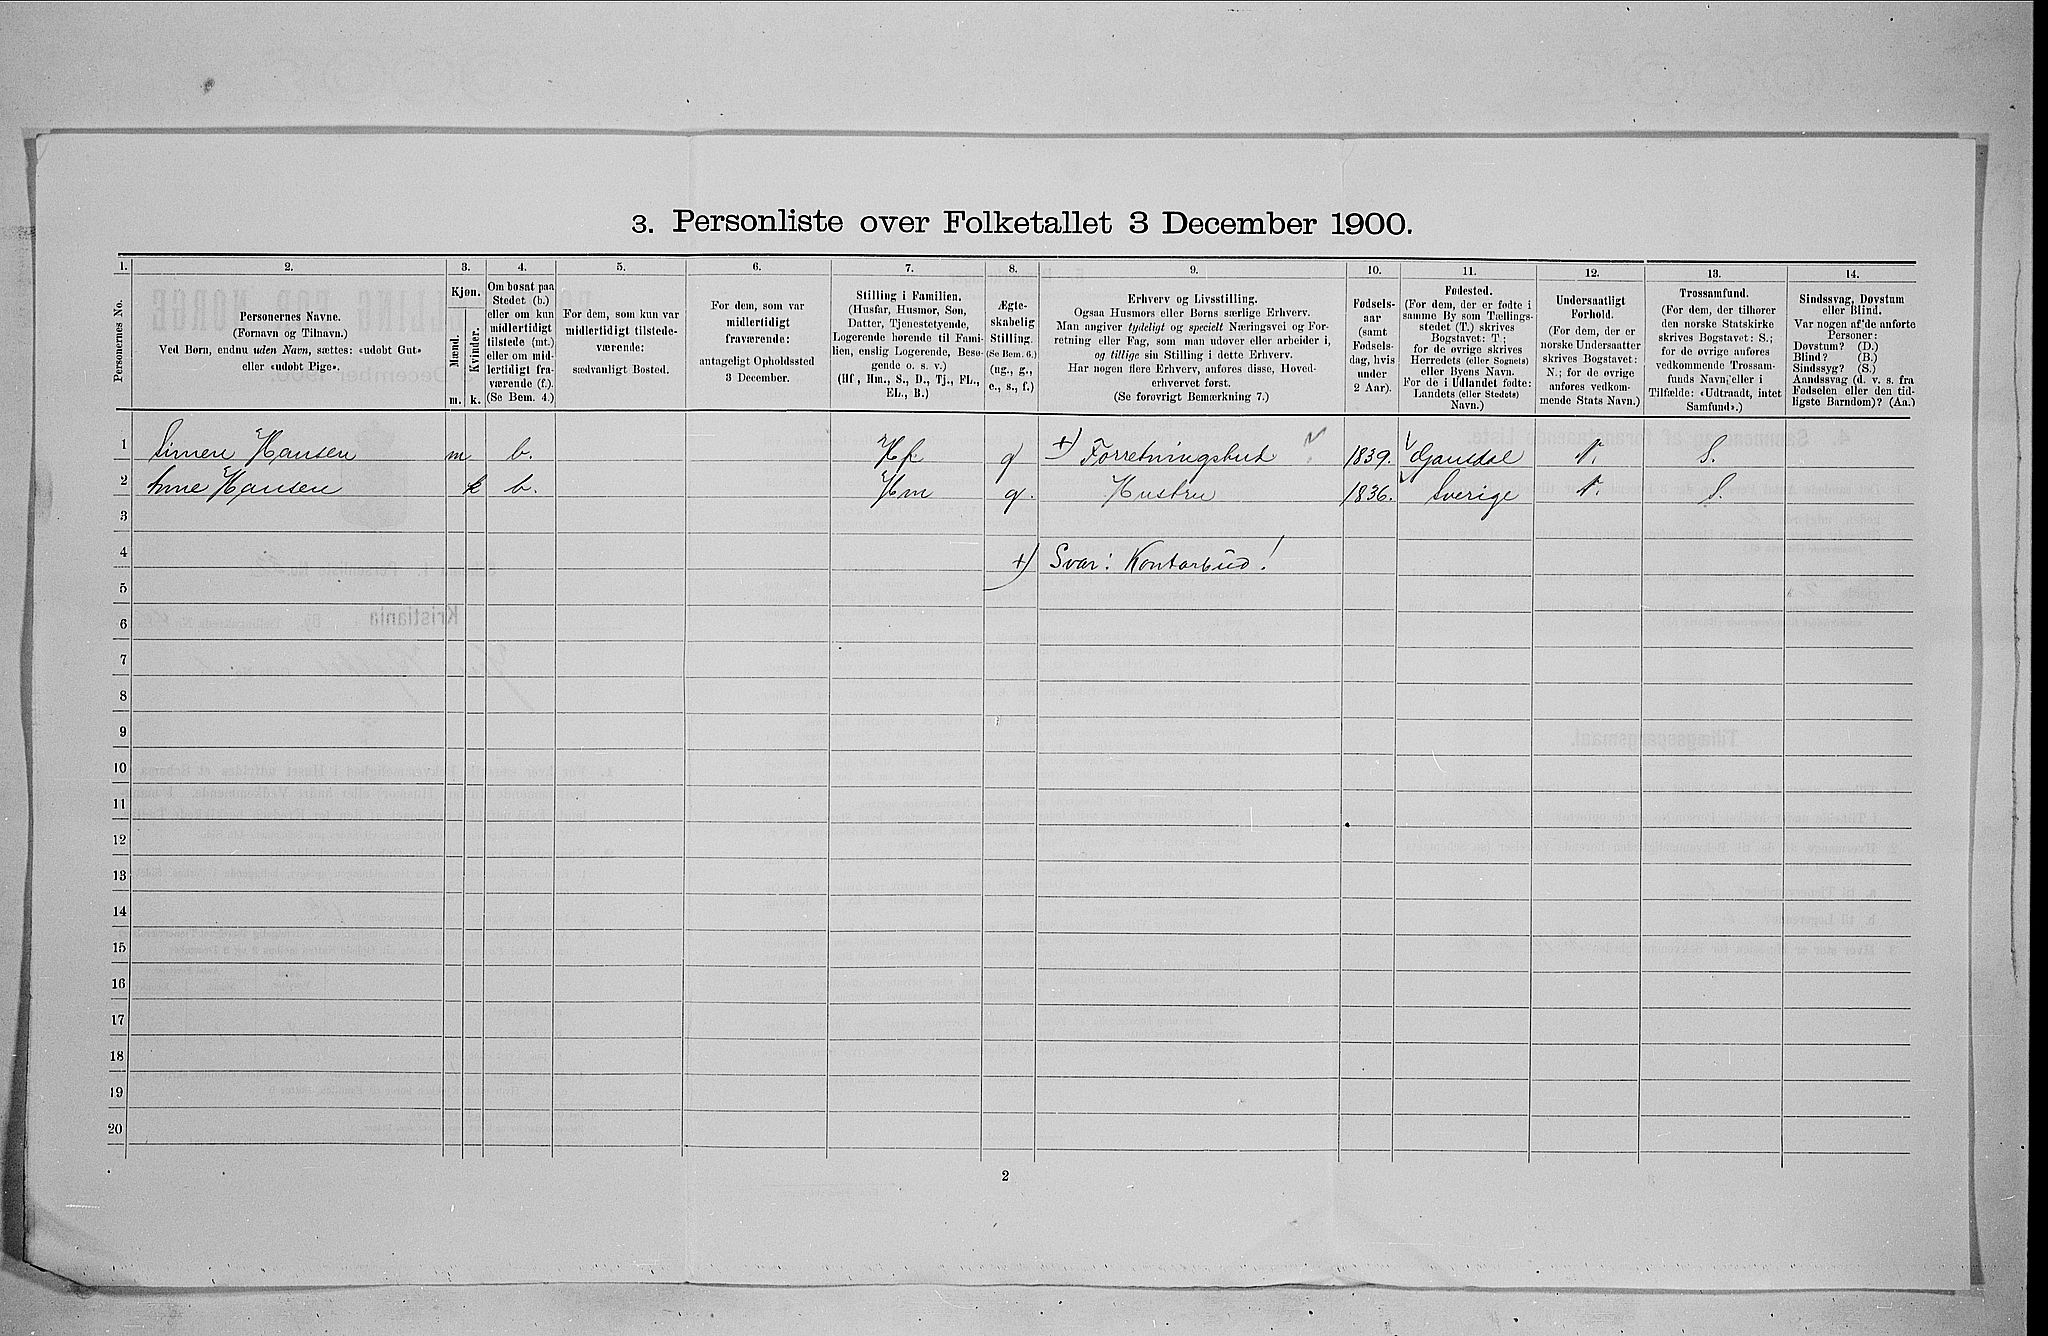 3. Personliste over Folketallet 3 December 1900.
1. 2. 3. 4. 5. 6. 7. 8. 9. 10. 11. 12. 13. 14.
Personernes No.
Personernes Navne.
(Fornavn og Tilnavn.)
Ved Børn, endnu uden Navn, sættes: «udøbt Gut»
eller «udøbt Pige».
Kjøn.
Mænd.
Kvinder.
m. k.
Om bosat paa
Stedet (b.)
eller om kun
midlertidigt
tilstede (mt.)
eller om mid-
lertidigt fra-
værende (f.).
(Se Bem. 4.)
For dem, som kun var
midlertidigt tilstede-
værende:
sædvanligt Bosted.
For dem, som var
midlertidigt
fraværende:
antageligt Opholdssted
3 December.
Stilling i Familien.
(Husfar, Husmor, Søn,
Datter, Tjenestetyende,
Logerende hørende til Fami-
lien, enslig Logerende, Besø-
gende o. s. v.)
(Hf, Hm., S., D., Tj., FL.,
EL., B.)
Ægte-
skabelig
Stilling.
(Se Bem. 6.)
(ug., g.,
e., s., f.)
Erhverv og Livsstilling.
Ogsaa Husmors eller Børns særlige Erhverv.
Man angiver tydeligt og specielt Næringsvei og For-
retning eller Fag, som man udøver eller arbeider i,
og tillige sin Stilling i dette Erhverv.
Har nogen flere Erhverv, anføres disse, Hoved-
erhvervet først.
(Se forøvrigt Bemærkning 7.)
Fødsels-
aar
(samt
Fødsels-
dag, hvis
under
2 Aar).
Fødested.
(For dem, der er fødte i
samme By som Tællings-
stedet (T.) skrives
Bogstavet: T.;
for de øvrige skrives
Herredets (eller Sognets)
eller Byens Navn.
For de i Udlandet fødte:
Landets (eller Stedets)
Navn.)
Undersaatligt
Forhold.
(For dem, der er
norske Undersaatter
skrives Bogstavet:
N.; for de øvrige
anføres vedkom-
mende Stats Navn.)
Trossamfund.
(For dem, der tilhører
den norske Statskirke
skrives Bogstavet: S.;
for de øvrige anføres
vedkommende Trossam-
funds Navn, eller i
Tilfælde: «Udtraadt, intet
Samfund».)
Sindssvag, Døvstum
eller Blind.
Var nogen af de anførte
Personer:
Døvstum? (D.)
Blind? (B.)
Sindssyg? (S.)
Aandssvag (d. v. s. fra
Fødselen eller den tid-
ligste Barndom)? (Aa.)
1 Simen Hansen m b. Hf g +) Forretningsbud ? 1839. Gausdal N. S.
2 Anne Hansen k b. Hm g. Hustru 1836. Sverige N. S.
3
4 +) Svar: Kontorbud!
5
6
7
8
9
10
11
12
13
14
15
16
17
18
19
20
2